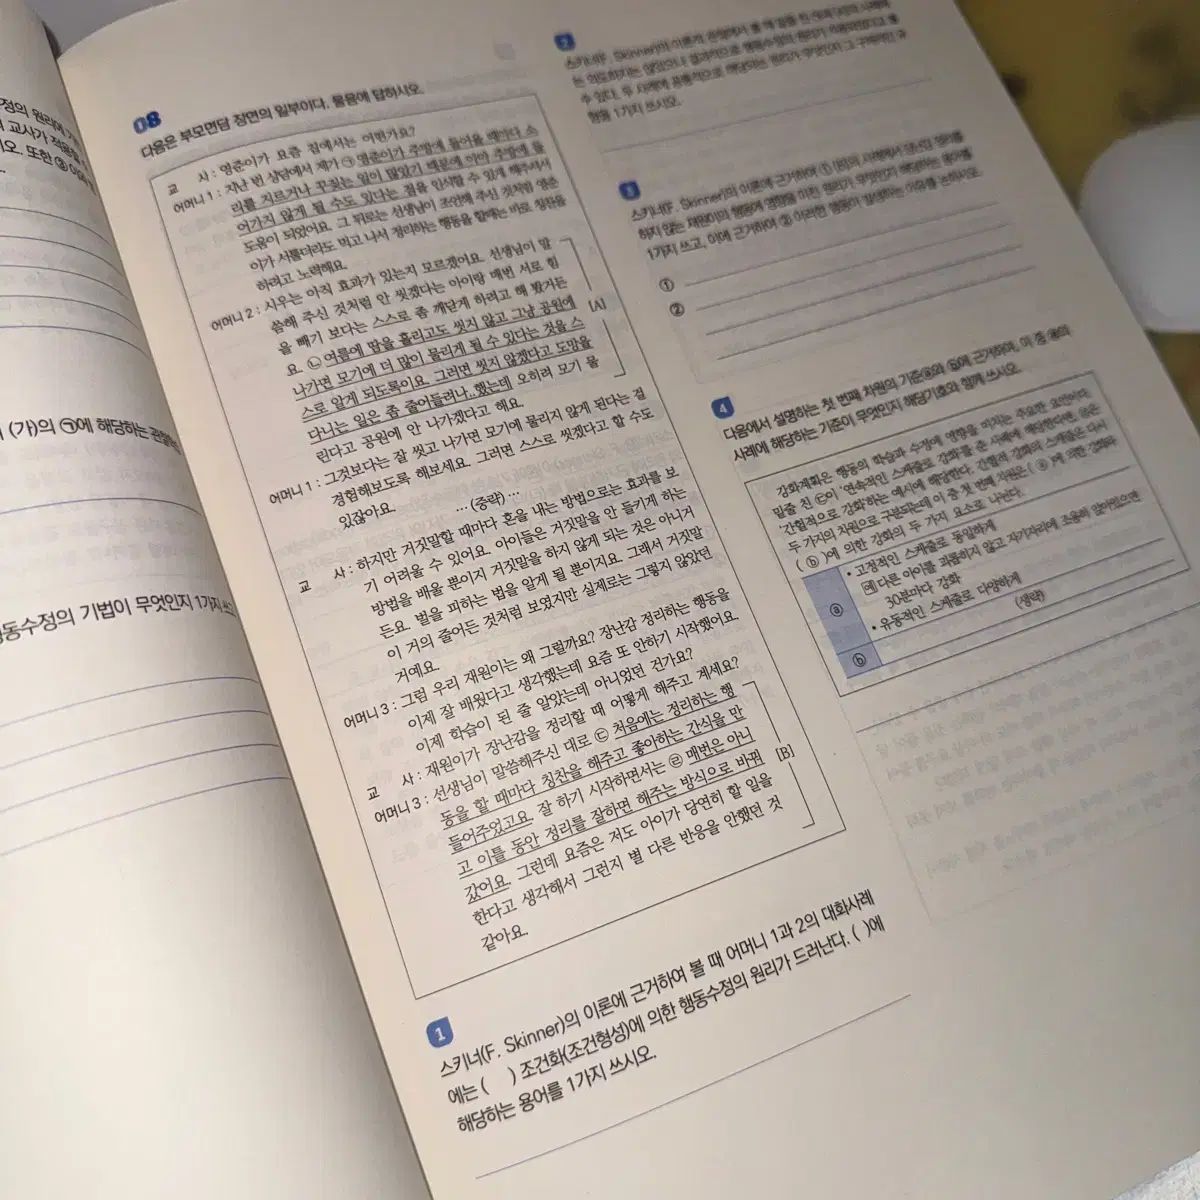 정의 원리에
교사가 적용할
시오. 또한 ③
(가)의 ㉠에 해당하는 관찰
행동수정의 기법이 무엇인지 1가지 쓰
08
다음은 부모면담 장면의 일부이다. 물음에 답하시오.
교 사 : 영준이가 요즘 집에서는 어떤가요?
어머니 1 : 지난 번 상담에서 제가 ㉠ 영준이가 주방에 들어올 때마다 소
리를 지르거나 꾸짖는 일이 많았기 때문에 아마 주방에 들
어가지 않게 될 수도 있다는 점을 인식할 수 있게 해주셔서
도움이 되었어요. 그 뒤로는 선생님이 조언해 주신 것처럼 영준
이가 서툴더라도 먹고 나서 정리하는 행동을 할때는 바로 칭찬을
하려고 노력해요.
어머니 2 : 시우는 아직 효과가 있는지 모르겠어요. 선생님이 말
씀해 주신 것처럼 안 씻겠다는 아이랑 매번 서로 힘
을 빼기 보다는 스스로 좀 깨닫게 하려고 해 봤거든
요. ㉡ 여름에 땀을 흘리고도 씻지 않고 그냥 공원에
나가면 모기에 더 많이 물리게 될 수 있다는 것을 스
스로 알게 되도록이요. 그러면 씻지 않겠다고 도망을
다니는 일은 좀 줄어들려나..했는데 오히려 모기 물
린다고 공원에 안 나가겠다고 해요.
[A]
어머니 1 : 그것보다는 잘 씻고 나가면 모기에 물리지 않게 된다는 걸
경험해보도록 해보세요. 그러면 스스로 씻겠다고 할 수도
있잖아요.
… (중략) …
교 사 : 하지만 거짓말할 때마다 혼을 내는 방법으로는 효과를 보
기 어려울 수 있어요. 아이들은 거짓말을 안 들키게 하는
방법을 배울 뿐이지 거짓말을 하지 않게 되는 것은 아니거
든요. 벌을 피하는 법을 알게 될 뿐이지요. 그래서 거짓말
이 거의 줄어든 것처럼 보였지만 실제로는 그렇지 않았던
거예요.
어머니 3 : 그럼 우리 재원이는 왜 그럴까요? 장난감 정리하는 행동을
이제 잘 배웠다고 생각했는데 요즘 또 안하기 시작했어요.
이제 학습이 된 줄 알았는데 아니었던 건가요?
교 사 : 재원이가 장난감을 정리할 때 어떻게 해주고 계세요?
어머니 3 : 선생님이 말씀해주신 대로 ㉢ 처음에는 정리하는 행
동을 할 때마다 칭찬을 해주고 좋아하는 간식을 만
들어주었고요. 잘 하기 시작하면서는 ㉣ 매번은 아니
고 이틀 동안 정리를 잘하면 해주는 방식으로 바꿔
갔어요. 그런데 요즘은 저도 아이가 당연히 할 일을
한다고 생각해서 그런지 별 다른 반응을 안했던 것
같아요.
[B]
1
스키너(F. Skinner)의 이론에 근거하여 볼 때 어머니 1과 2의 대화사례
에는 ( ) 조건화(조건형성)에 의한 행동수정의 원리가 드러난다. ( )에
해당하는 용어를 1가지 쓰시오.
2
스키너(F. Skinner)의 이론의 관점에서 볼 때 밑줄 친
는 의도하지는 않았으나 결과적으로 행동수정의 원리가 적용되었다고 볼
수 있다. 두 사례에 공통적으로 해당되는 원리가 무엇인지 그 구체적인 유
형을 1가지 쓰시오.
3
스키너(F. Skinner)의 이론에 근거하여 ① [B]의 사례에서 장난감 정리를
하지 않는 재원이의 행동에 영향을 미친 원리가 무엇인지 해당하는 용어를
1가지 쓰고, 이에 근거하여 ② 이러한 행동이 발생하는 이유를 쓰시오.
①
②
4
다음에서 설명하는 첫 번째 차원의 기준ⓐ와 ⓑ에 근거하여, 이 중 ㉣의
사례에 해당하는 기준이 무엇인지 해당기호와 함께 쓰시오.
강화계획은 행동의 학습과 수정에 영향을 미치는 주요한 요인이다.
밑줄 친 ㉢이 '연속적인 스케줄로 강화'를 준 사례에 해당한다면, ㉣은
'간헐적으로 강화'하는 예시에 해당한다. 간헐적 강화의 스케줄은 다시
두 가지의 차원으로 구분되는데 이 중 첫 번째 차원은 ( ⓐ )에 의한 강화와
( ⓑ )에 의한 강화의 두 가지 요소로 나뉜다.
ⓐ
• 고정적인 스케줄로 동일하게
예 다른 아이를 괴롭히지 않고 자기자리에 조용히 앉아있으면
30분마다 강화
• 유동적인 스케줄로 다양하게
ⓑ
(생략)